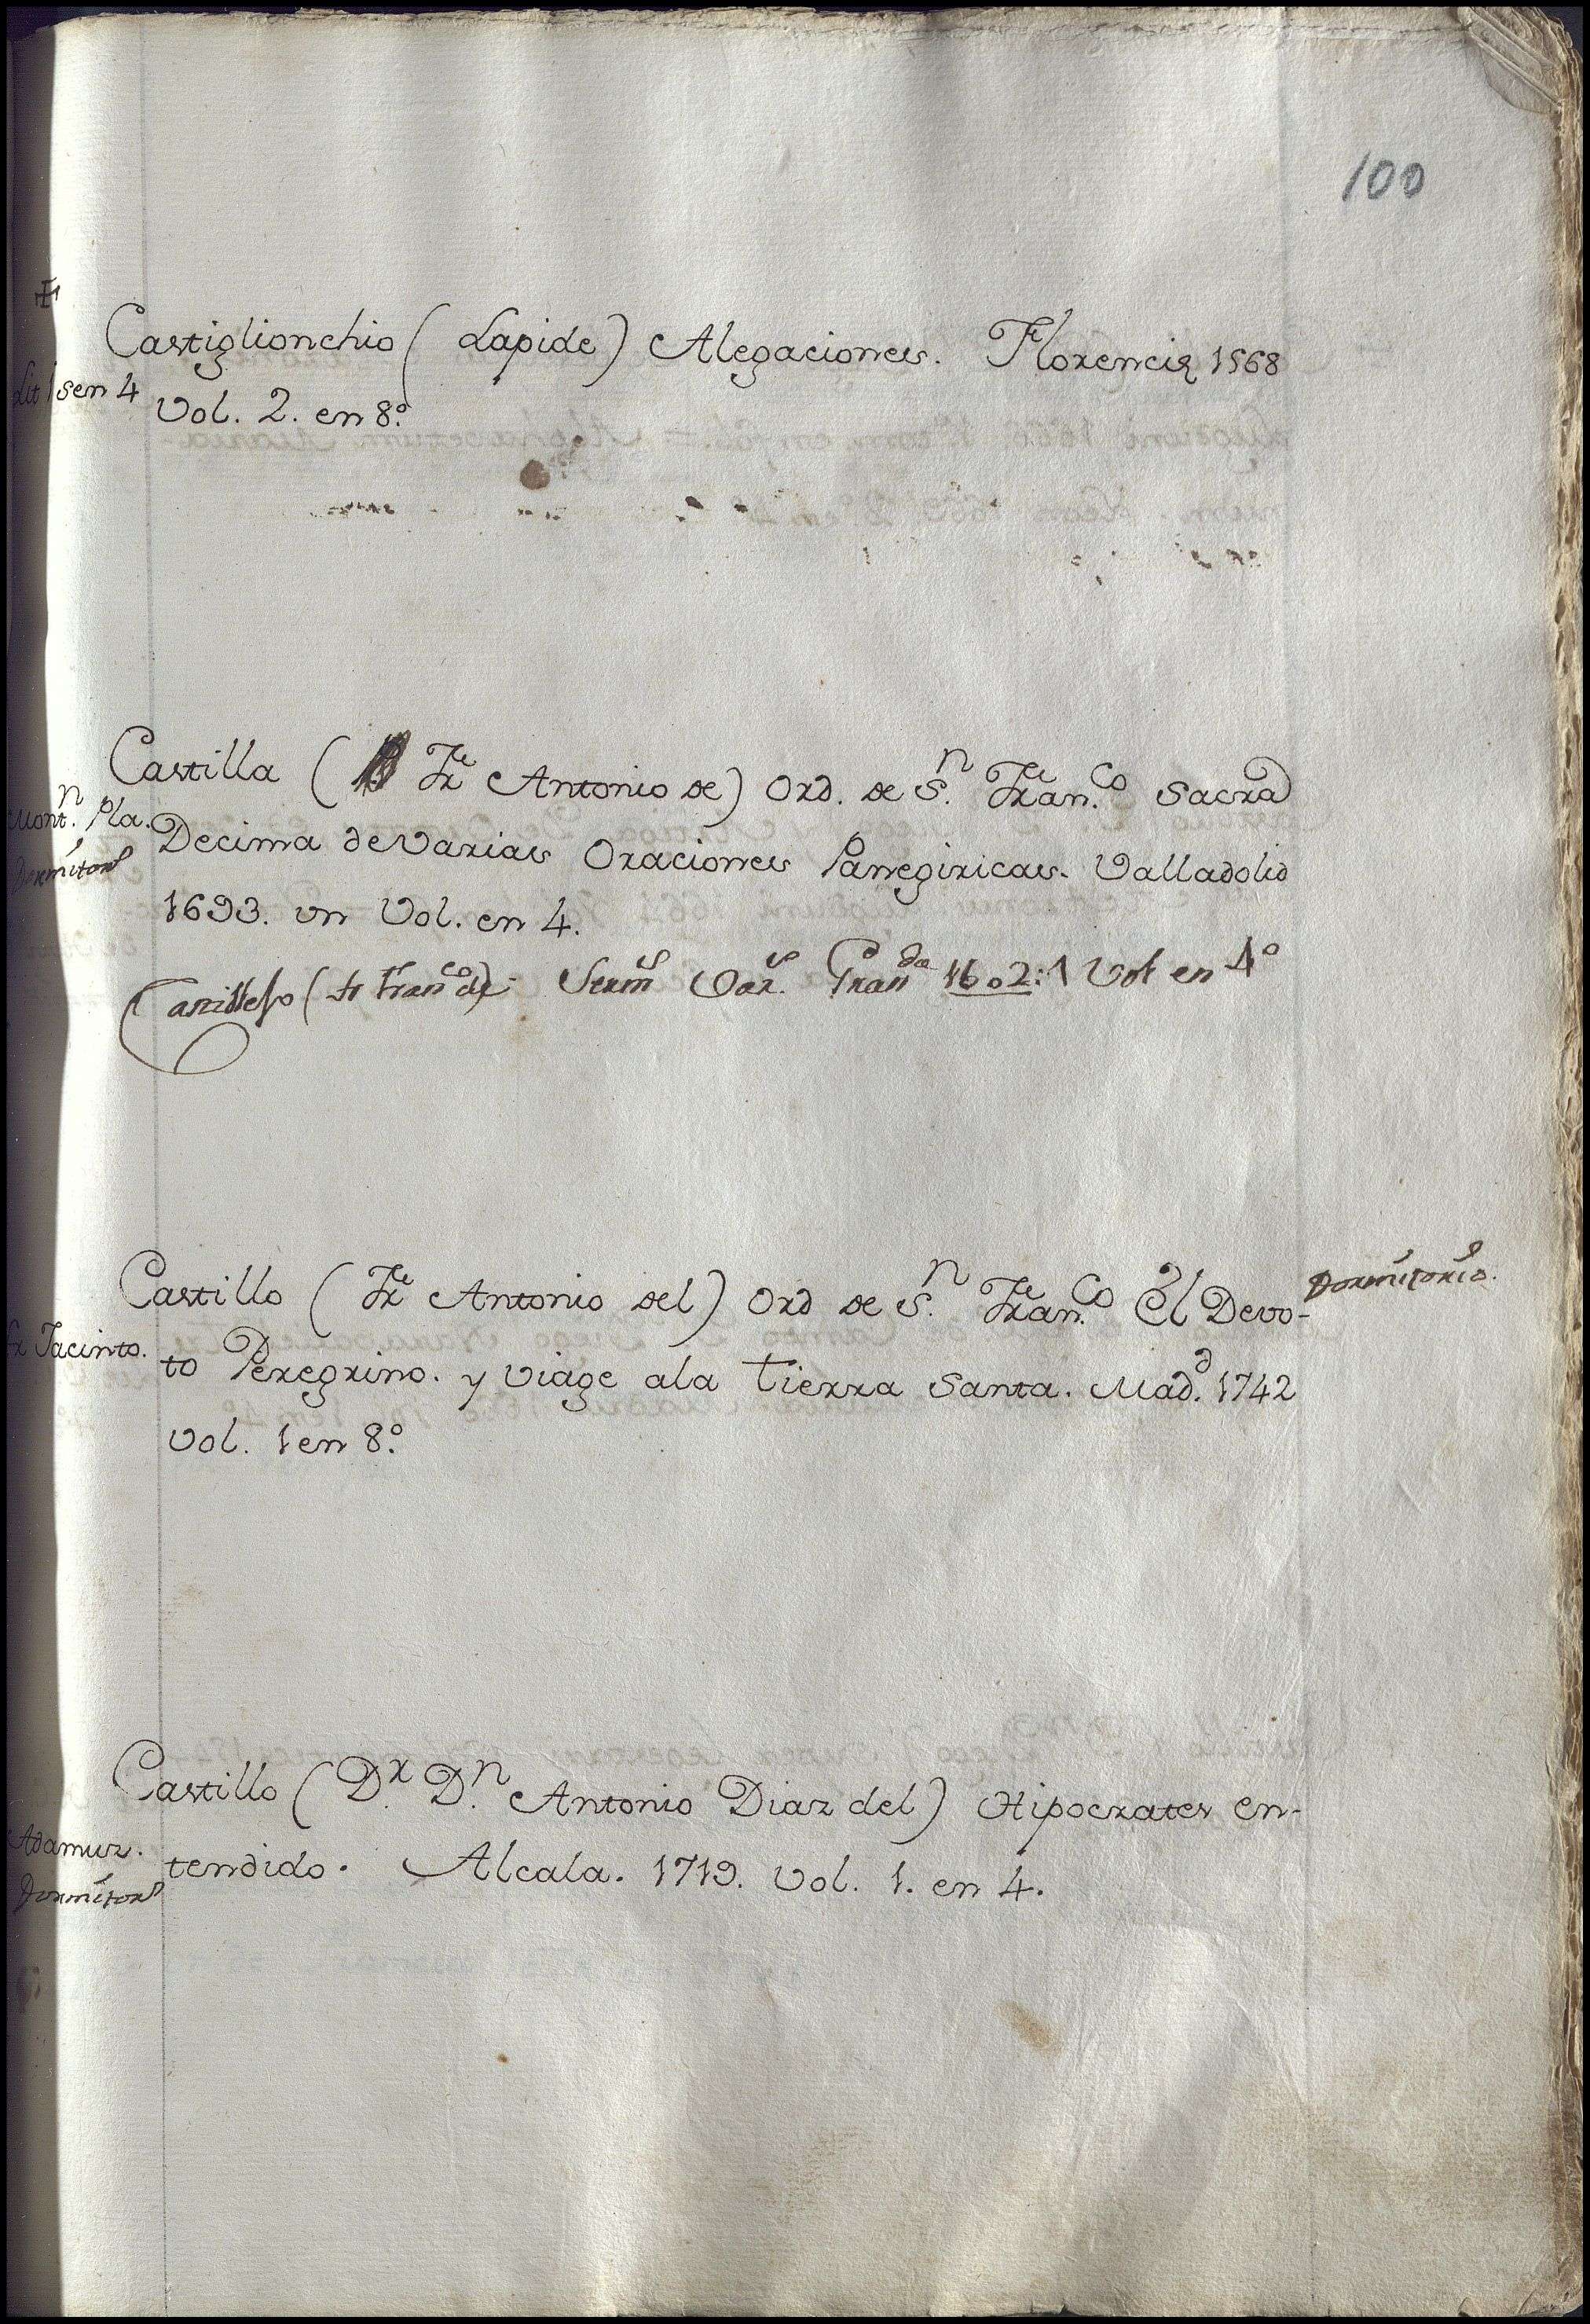 100
Castiglionchio (Lapide) Alegaciones. Florencia 1568
Lit 1 sen 4
Vol. 2. en 8.º
Castilla ( Fr Antonio de) Ord. de S.n Fran.co Sacra
Mont.n Pla.
Decima de varias Oraciones Panegiricas. Valladolid
Dormitorº
1693. vn Vol. en 4.
(fr Franco de) Serms Vars. Granda 1602: 1 Vol en 4º
Castillo (Fr Antonio del) Ord de S.n Fran.co El Devo-
Dormitorio.
fr Jacinto.
to Peregrino. y viage ala tierra Santa. Mad.d 1742
Vol. 1 en 8.º
Castillo (D.r D.n Antonio Diaz del) Hipocrates en-
Adamuz.
tendido. Alcala. 1719. Vol. 1. en 4.
Dormitorº